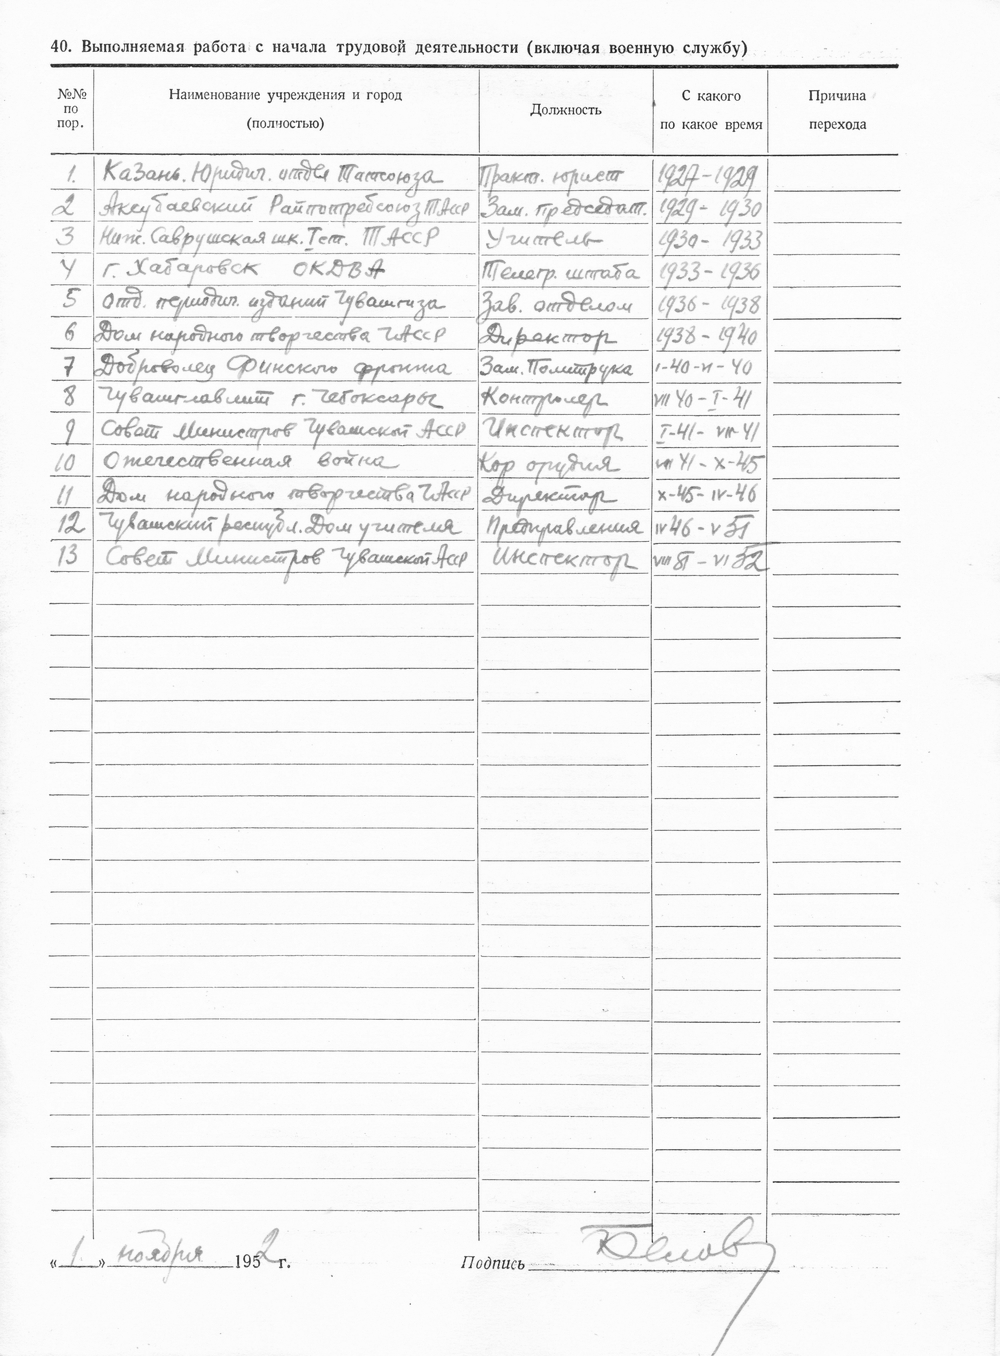 40. Выполняемая работа с начала трудовой деятельности (включая военную службу)
№№ по пор. Наименование учреждения и город (полностью) Должность С какого по какое время Причина перехода
1. Казань. Юридич. отдел Татсоюза Практ. юрист 1927-1929
2 Аксубаевский Райпотребсоюз ТАССР Зам. председат. 1929-1930
3 Ниж. Саврушская шк. ТАССР Учитель 1930-1933
4 г. Хабаровск ОКДВА Телегр. штаба 1933-1936
5 Отд. периодич. изданий Чувашгиза Зав. отделом 1936-1938
6 Дом народного творчества ЧАССР Директор 1938-1940
7 Доброволец Финского фронта Зам. Политрука I-40-VI-40
8 Чувашглавлит г. Чебоксары Контролер VII 40-I-41
9 Совет Министров Чувашской АССР Инспектор I-41-VII-41
10 Отечественная война Ком орудия VII 41-X-45
11 Дом народного творчества ЧАССР Директор X-45-IV-46
12 Чувашский республ. Дом учителя Предправления IV 46-V 51
13 Совет Министров Чувашской АССР Инспектор VIII 51-VI 52
« 1. » ноября 1952 г. Подпись